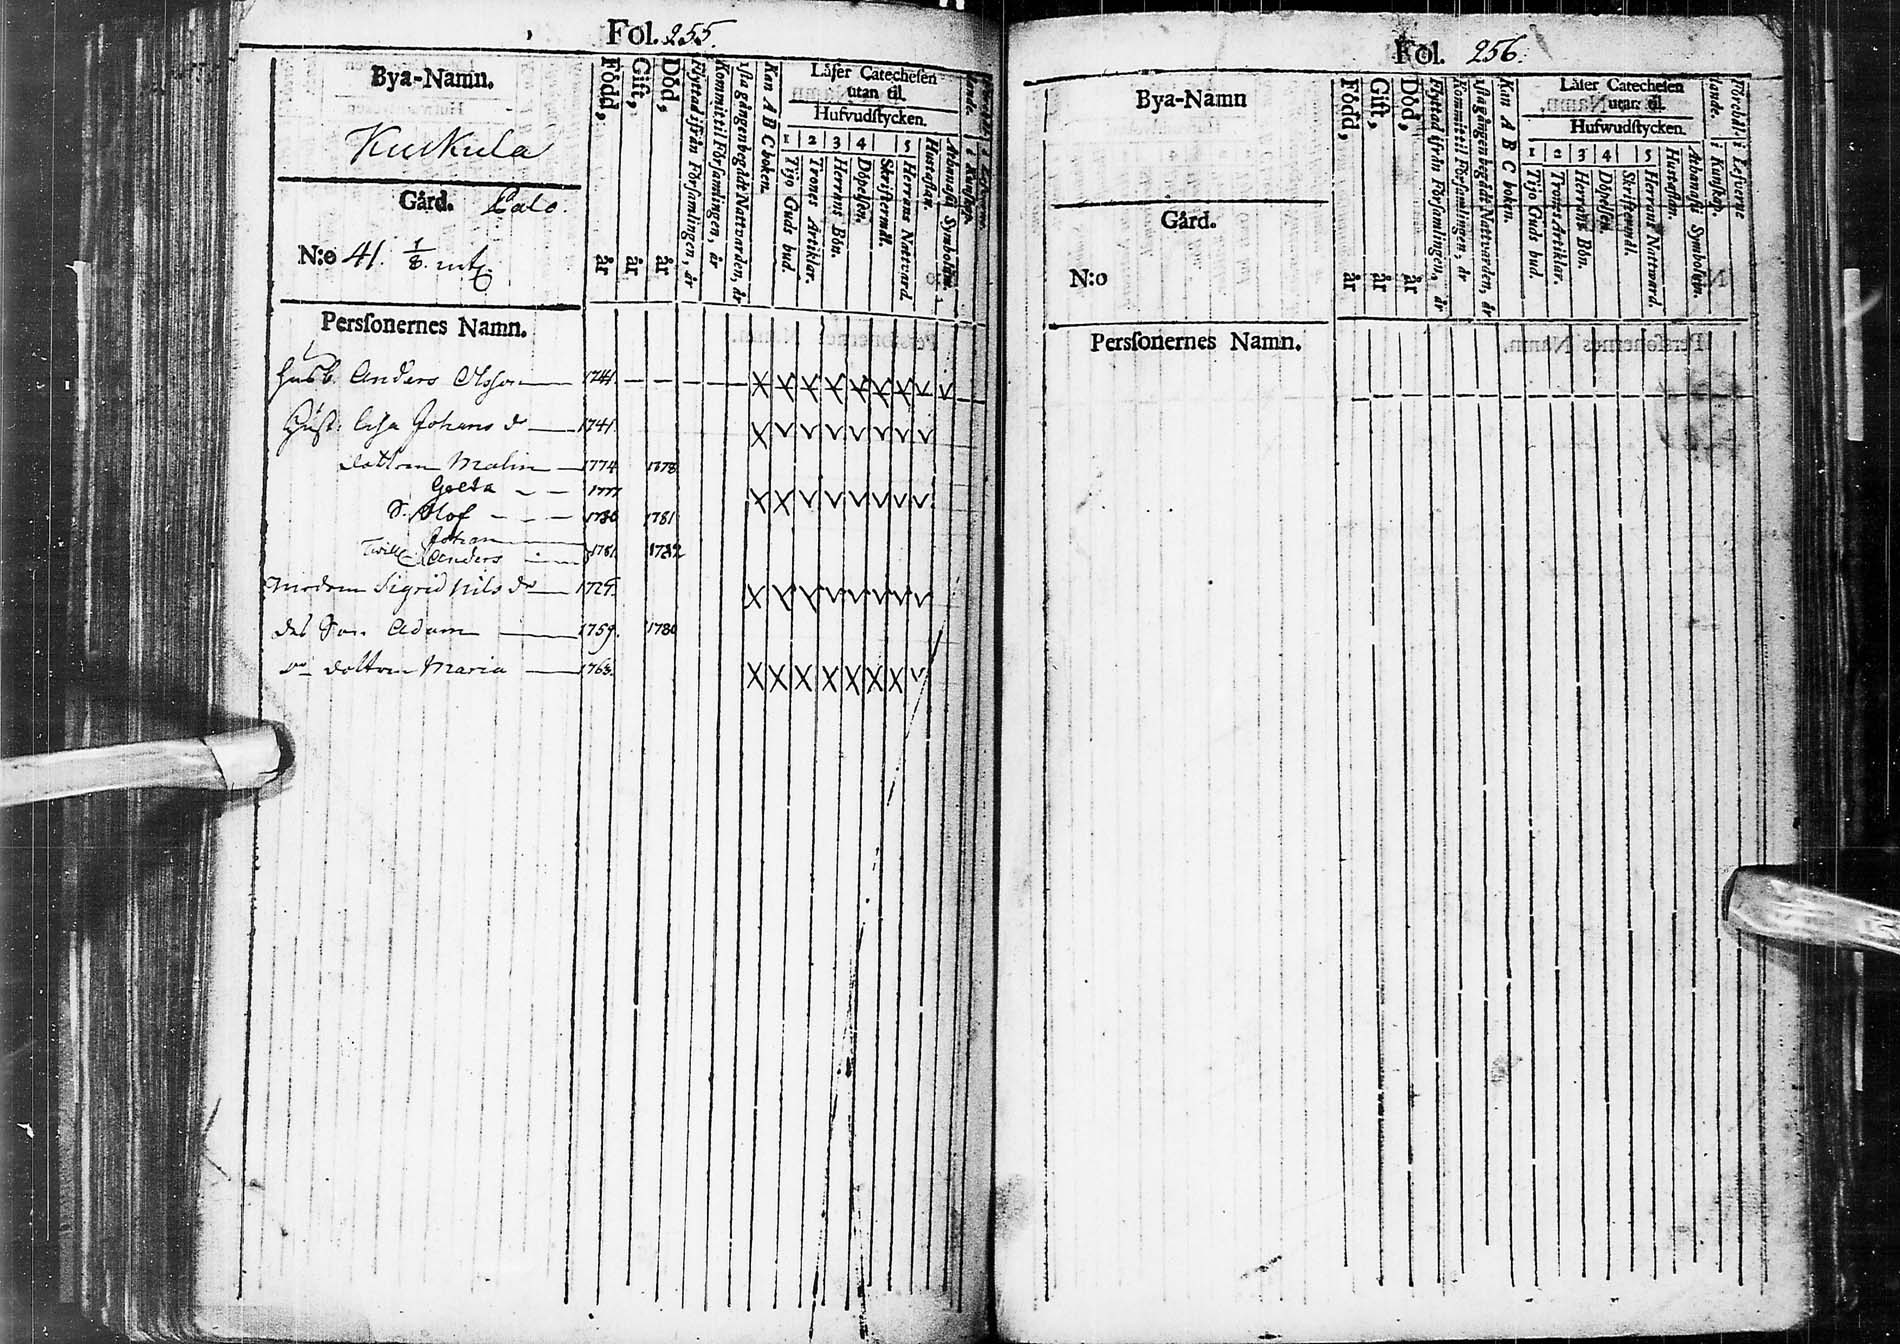 Fol. 255.
Bya-Namn.
Kuckula
Gård. Palo.
N:o 41. 1/8. mtl.
Född, år
Gift, år
Död, år
Flyttad ifrån Församlingen, år
Kommit til Församlingen, år
1sta gången begådt Nattvarden, år
Kan A B C boken.
Läser Catechesen
utan til.
Hufvudstycken.
1 2 3 4 5
Tijo Guds bud.
Trones Artiklar.
Herrans Bön.
Döpelsen.
Skriftermål.
Herrans Nattvard.
Hustaflan.
Athanasii Symbolum.
Perſonernes Namn.
Husb. Anders Olsson 1741.
Hust: Lisa Johans dr 1741.
dottren Malin 1774 1778
Greta 1777
S. Olof 1780 1781
Johan
Twill. Anders 1781. 1782
Modren Sigrid Nils dr 1729.
des Son Adam 1759. 1780
do dottren Maria 1763.
Fol. 256.
Bya-Namn
Gård.
N:o
Född, år
Gift, år
Död, år
Flyttad ifrån Församlingen, år
Kommit til Församlingen, år
1sta gången begådt Nattvarden, år
Kan A B C boken.
Läser Catechesen
utan til.
Hufwudſtycken.
1 2 3 4 5
Tijo Guds bud.
Trones Artiklar.
Herrans Bön.
Döpelsen.
Skriftermål.
Herrans Nattward.
Hustaflan.
Athanasii Symbolum.
i Kunskap.
i Lefverne
Perſonernes Namn.